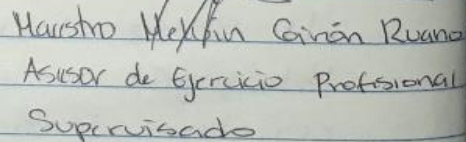 Maestro Girón Ruano
Asesor de Ejercicio Profesional
Supervisado